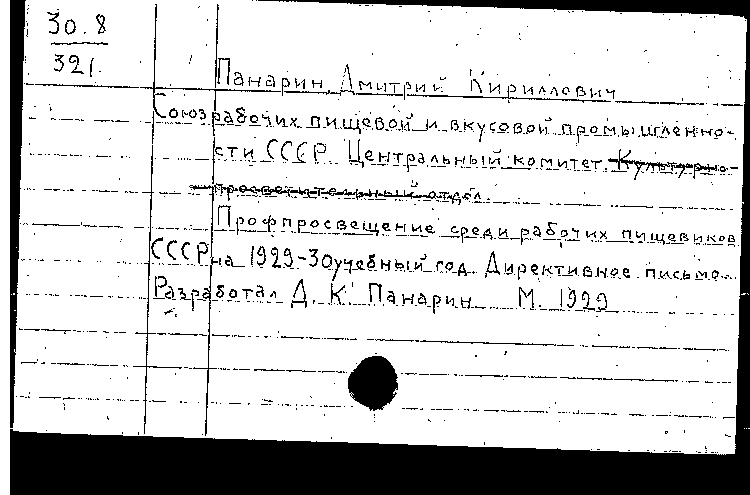 30.8
321.
Панарин, Дмитрий Кириллович
Союз рабочих пищевой и вкусовой промышленно-
сти СССР. Центральный комитет. Культурно-
просветительный отдел.
Профпросвещение среди рабочих пищевиков
СССР на 1929-30 учебный год. Директивное письмо.
Разработал Д. К. Панарин М. 1929